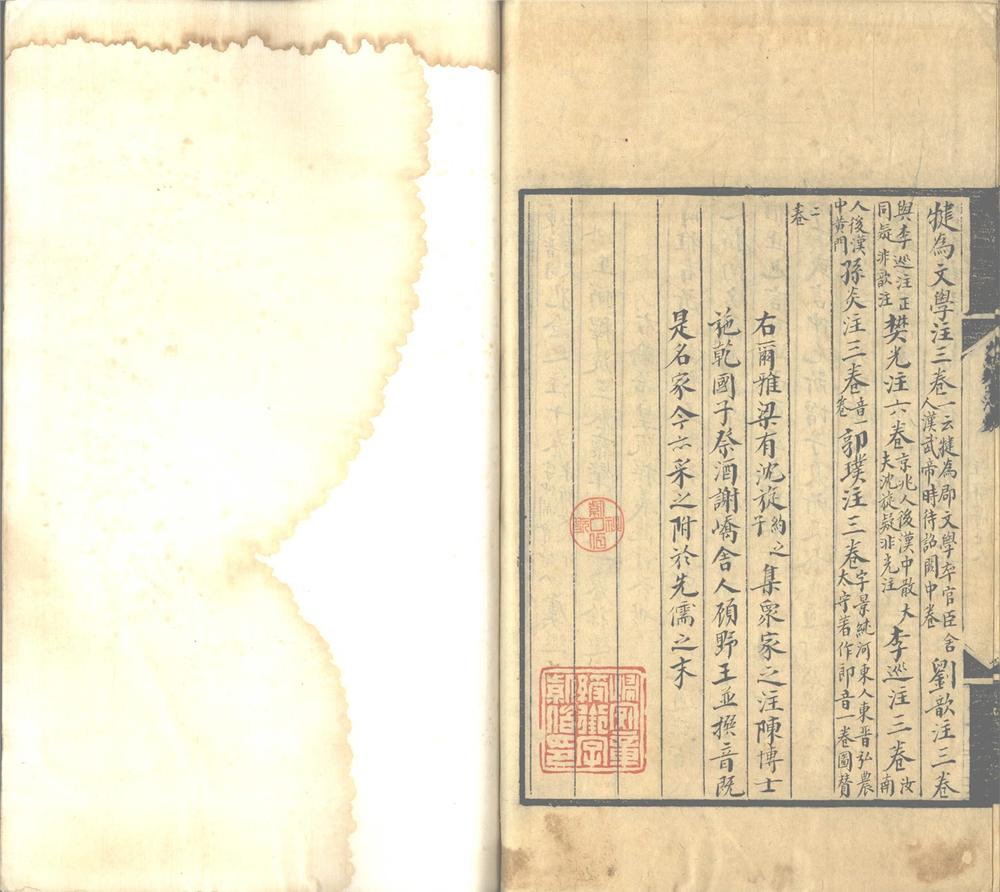 犍為文學注三卷一云犍為郡文學卒官臣舍人漢武帝時待詔闕中卷劉歆注三卷
與李巡注正同疑非歆注樊光注六卷京兆人後漢中散大夫沈旋疑非光注李巡注三卷汝南
人後漢中黃門孫炎注三卷音一卷郭璞注三卷字景純河東人東晉弘農太守著作郎音一卷圖贊
二卷
右爾雅梁有沈旋約之子集眾家之注陳博士
施乾國子祭酒謝嶠舍人顧野王並撰音既
是名家今亦采之附於先儒之末
歸安章
綬銜字
紫伯印